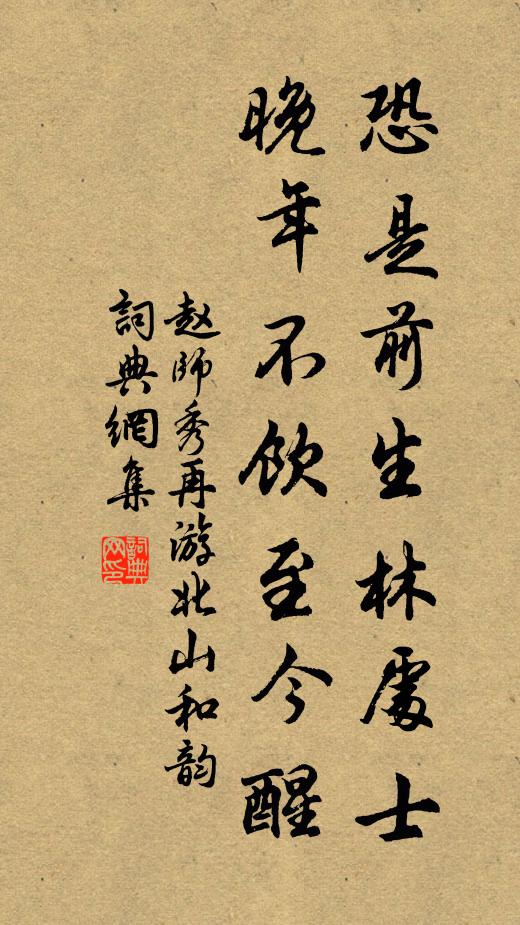 恐是前生林處士
晚年不飲至今醒
赵師秀再游北山和韵
詞典網集
詞典网印